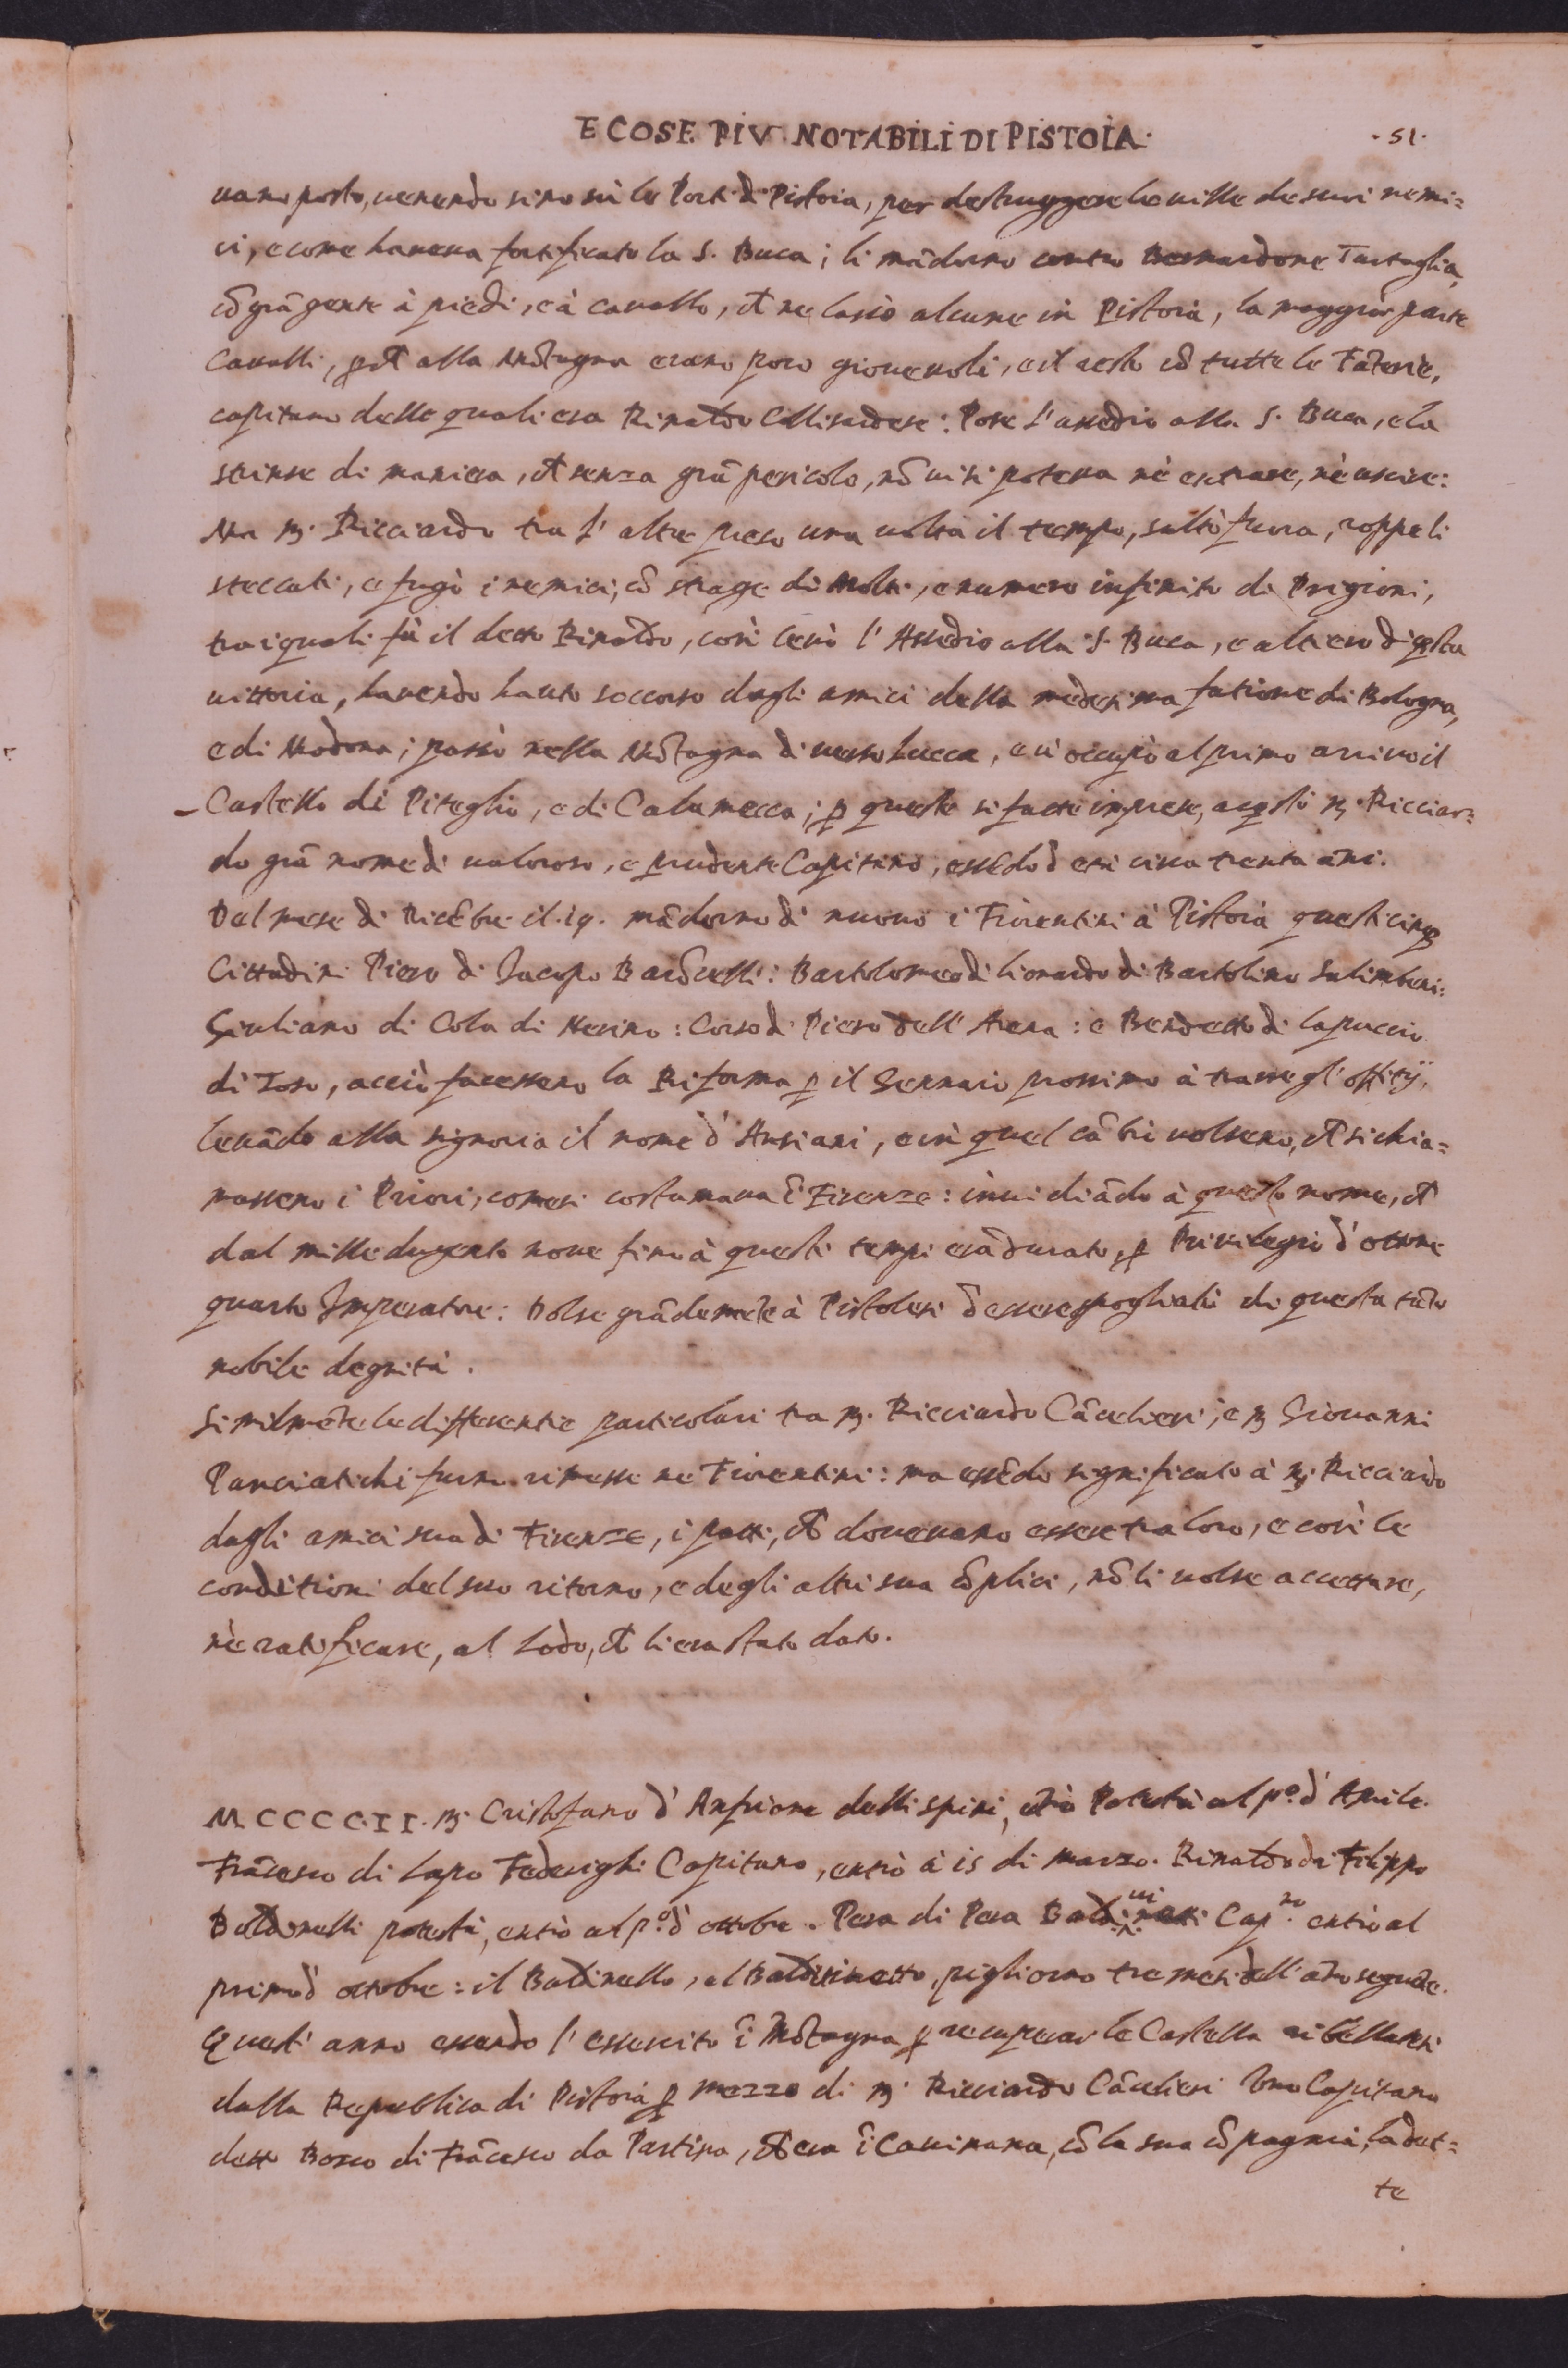 E COSE PIV NOTABILI DI PISTOIA. .51.
uano posto, uenendo sino sù le Porti di Pistoia, per destruggere le uille de suoi nemi=
ci, e come haueua fortificato la S. Buca; li mãdorno contro Bernardone Tartaglia,
cõ grã gente à piedi, e à cauallo, ch̃ ne lasciò alcune in Pistoia, la maggior parte
Caualli, ꝑch̃ alla Mõtagna erano poco gioueuoli, e il resto cõ tutte le Fãterie,
capitano delle quali era Rinaldo: Pose l'assedio alla S. Buca, e la
strinse di maniera, ch̃ senza grã pericolo, nõ ui si poteua nè entrare, nè uscire:
Ma M. Ricciardo tra l'altre preso una uolta il tempo, saltò fuora, roppe li
steccati, e fugò i nemici, cõ strage di Molti, e numero infinito di Prigioni,
tra i quali fù il detto Rinaldo, così leuò l'Assedio alla S. Buca, e altiero di q̃sta
uittoria, hauendo hauto soccorso dagli amici della medesima fatione di Bologna,
e di Modona; passò nella Mõtagna di uerso Lucca, e ui occupò al primo arriuo il
- Castello di Piteglio, e di Calamecca; ꝑ queste si fatte imprese, acq̃stò M. Ricciar=
do grã nome di ualoroso, e prudente Capitano, essẽdo d'età circa trenta ãni.
Dal mese di Dicẽbre il. 19. mãdorno di nuouo i Fiorentini à Pistoia questi cinq3
Cittadini Piero di Jacopo Barõcelli: Bartolomeo di lionardo di Bartolino Salimbeni:
Giuliano di Cola di Nerino: Corso di Piero dell'Arena: e Bendetto di lapuccio
di Toso, acciò facesseno la Riforma ꝑ il Gennaio prossimo à trarre gl'offitij,
leuãdo alla signoria il nome d'Ansiani, e in quel cãbio uolseno, ch̃ si chia=
masseno i Priori, come si costumaua ĩ Firenze: inuidiãdo à questo nome, ch̃
dal mille dugento noue fino à questi tempi era durato, ꝑ Priuilegio d'ottone
quarto Imperatore: Dolse grãdemẽte à Pistolesi d'essere spogliati di questa tãto
nobile degnità.
Similmẽte le differentie particolari tra M. Ricciardo Cãcelieri, e M Giouanni
Panciatichi furno rimesse ne Fiorentini: ma essẽdo significato à M. Ricciardo
dagli amici sua di Firenze, i patti, ch̃ doueuano essere tra loro, e così le
conditioni del suo ritorno, e degli altri sua cõplici, nõ li uolse accettare,
nè ratificare, al Lodo, ch̃ li era stato dato.
MCCCCII. M. Cristofano d'Anfrione delli spini, ẽtrò Potestà al p.º d'Aprile.
Frãcesco di Lapo Federighi Capitano, entrò à is di marzo. Rinaldo di Filippo
potestà, entrò al p.º d'ottobre. Pera di Pera Cap.no entrò al
primo d'ottobre: il, el, pigliorno tre mesi dell'ãno seguẽte.
Quest'anno essendo l'essercito ĩ Mõtagna ꝑ recuperar le Castella ribellatesi
dalla Republica di Pistoia ꝑ mezzo di M. Ricciardo Cãcelieri Vno Capitano
detto Bosco di Frãcesco da Partina, ch̃ era ĩ Cauinana, cõ la sua cõpagnia, cãdut=
te